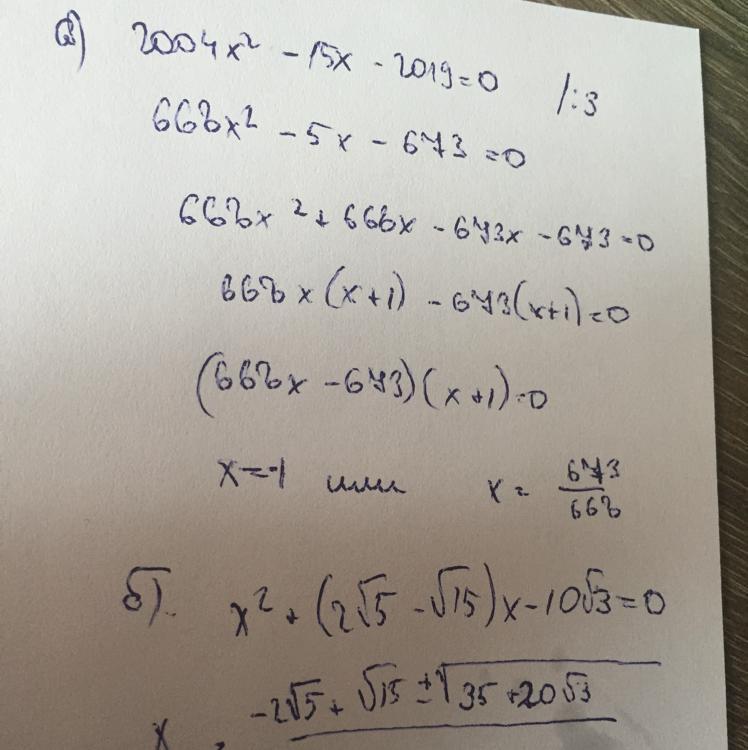 а) 2004x² - 15x - 2019 = 0 /:3
668x² - 5x - 673 = 0
668x² + 668x - 673x - 673 = 0
668x(x+1) - 673(x+1) = 0
(668x - 673)(x+1) = 0
x = -1 или x = 673/668
б). x² + (2√5 - √15)x - 10√3 = 0
x = -2√5 + √15 ± √35 + 20√3